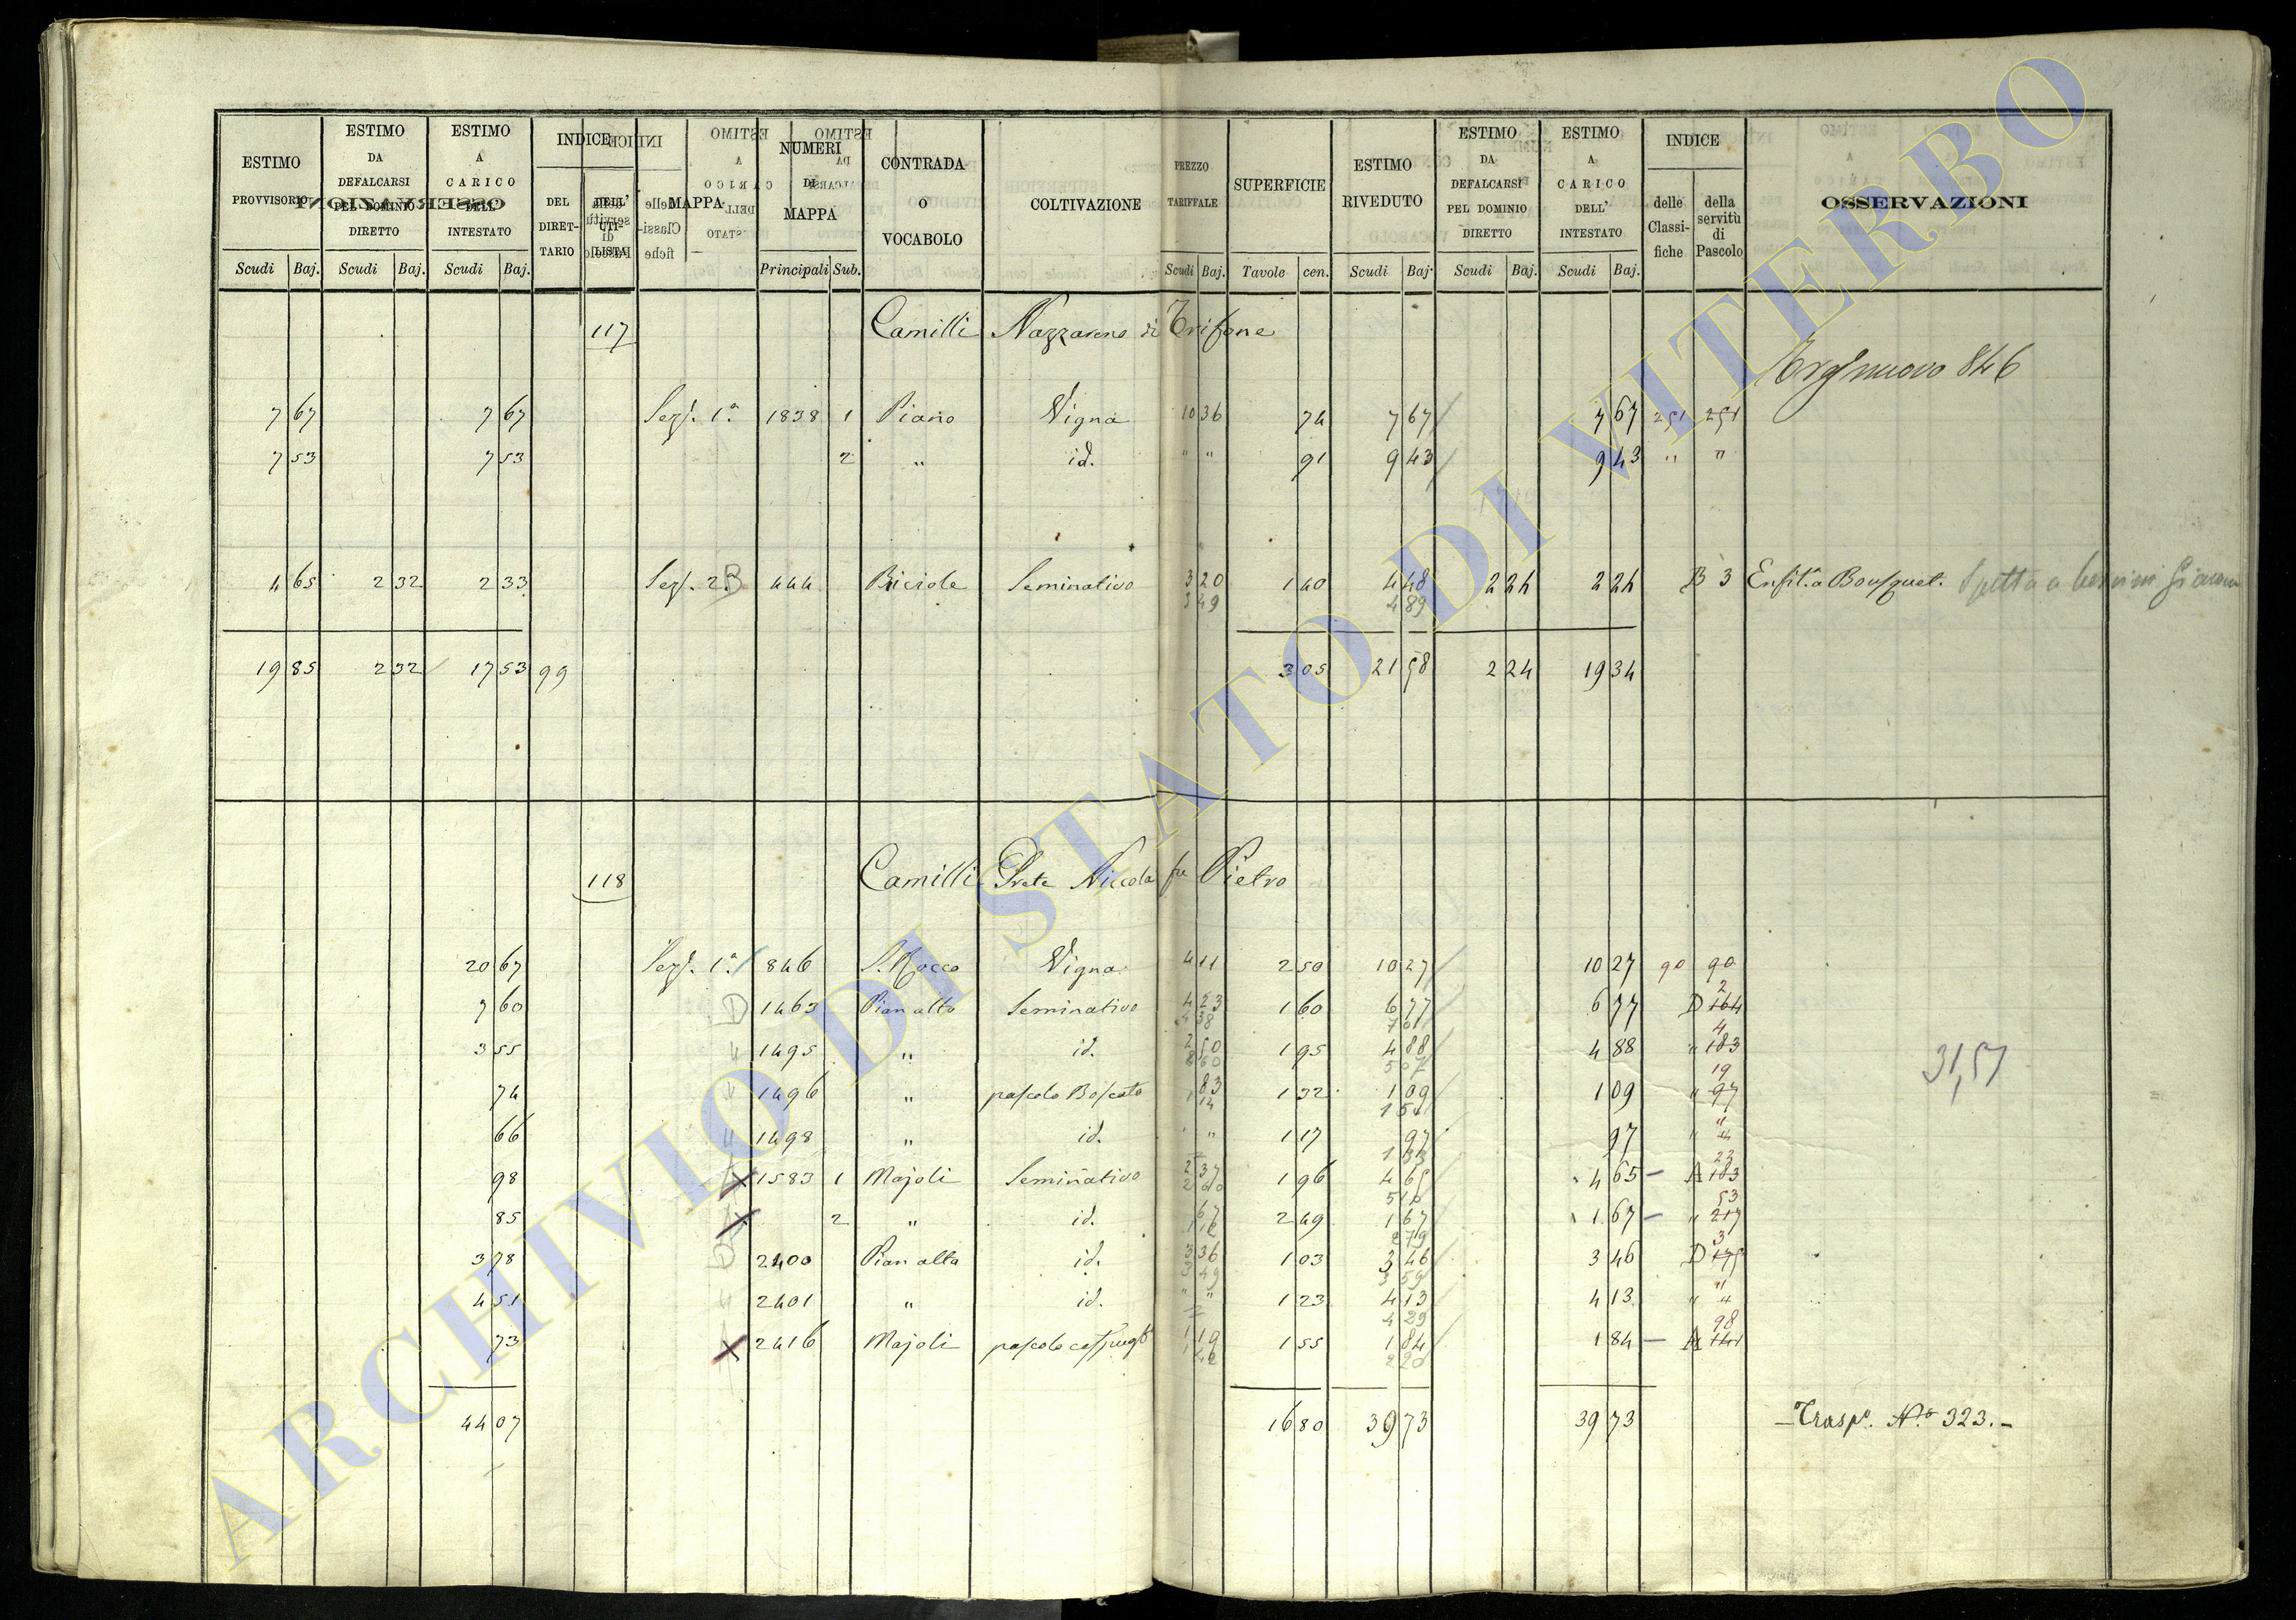 ESTIMO PROVVISORIO | ESTIMO DA DEFALCARSI PEL DOMINIO DIRETTO | ESTIMO A CARICO DELL' INTESTATO | INDICE DEL DIRETTARIO | DELL' UTILISTA | MAPPA | NUMERI DI MAPPA | CONTRADA O VOCABOLO | COLTIVAZIONE | PREZZO TARIFFALE | SUPERFICIE | ESTIMO RIVEDUTO | ESTIMO DA DEFALCARSI PEL DOMINIO DIRETTO | ESTIMO A CARICO DELL' INTESTATO | INDICE delle Classifiche | della servitù di Pascolo | OSSERVAZIONI
Scudi Baj. | Scudi Baj. | Scudi Baj. | Principali Sub. | Scudi Baj. | Tavole cen. | Scudi Baj. | Scudi Baj. | Scudi Baj.
117 Camilli Nazzareno di Trifone
nuovo 846
7 67 | 7 67 | Sez. 1ª | 1838 | 1 | Piano | Vigna | 10 36 | 74 | 7 67 | 7 67 | 251 | 251
7 53 | 7 53 | 2 | " | id. | " " | 91 | 9 43 | 9 43 | " | "
4 65 | 2 32 | 2 33 | Sez. 2 B | 444 | Biciole | Seminativo | 3 20 | 1 40 | 4 48 | 2 24 | 2 24 | B 3 | Enfit. a Bousquet. Spetta a
3 49 | 4 89
19 85 | 2 32 | 17 53 | 99 | 3 05 | 21 58 | 2 24 | 19 34
118 Camilli Prete Niccola fu Pietro
20 67 | Sez. 1ª | 846 | S. Rocco | Vigna | 4 11 | 2 50 | 10 27 | 10 27 | 90 | 90
7 60 | D | 1463 | Pian alto | Seminativo | 4 23 | 1 60 | 6 77 | 6 77 | D 164 2
4 38 | 7 01
3 55 | " | 1495 | " | id. | 2 50 | 1 95 | 4 88 | 4 88 | " 183 4
2 60 | 5 07
74 | " | 1496 | " | pascolo Boscato | 83 | 1 32 | 1 09 | 1 09 | " 97 19
1 14 | 1 50
66 | " | 1498 | " | id. | " | 1 17 | 97 | 97 | " "
1 33
98 | 1583 | 1 | Majoli | Seminativo | 2 37 | 1 96 | 4 65 | 4 65 | A 183 23
2 60 | 5 10
85 | 2 | " | id. | 67 | 2 49 | 1 67 | 1 67 | " 217 53
1 12 | 2 79
3 78 | D | 2400 | Pian alto | id. | 3 36 | 1 03 | 3 46 | 3 46 | D 175 3
3 49 | 3 59
4 51 | " | 2401 | " | id. | " " | 1 23 | 4 13 | 4 13 | " "
4 29
73 | 2416 | Majoli | pascolo cespugl | 1 19 | 1 55 | 1 84 | 1 84 | A 141 98
1 42 | 2 20
31,57
44 07 | 16 80 | 39 73 | 39 73 | Trasp. N.º 323.
ARCHIVIO DI STATO DI VITERBO